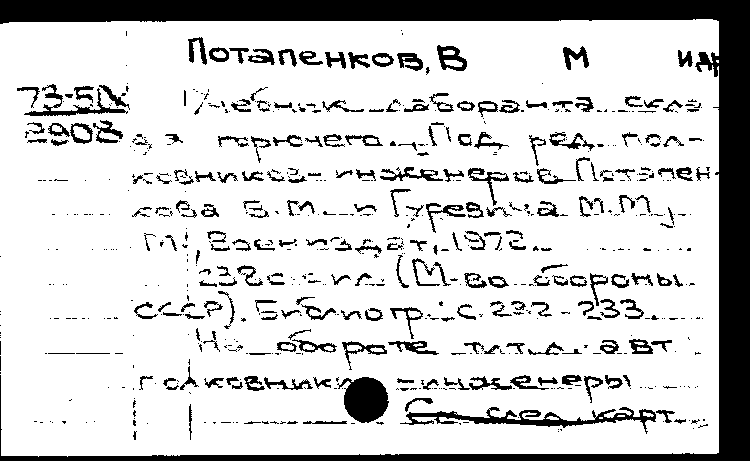 Потапенков, В М и др
73-5IX
2908
Учебник лаборанта скла-
да горючего. Под ред. пол-
ковников-инженеров Потапен-
кова В.М. и Гуревича М.М.
М., Воениздат, 1972.
232 с. с ил. (М-во обороны
СССР). Библиогр.: с. 232-233.
На обороте тит. л. авт
полковники-инженеры
См след. карт.